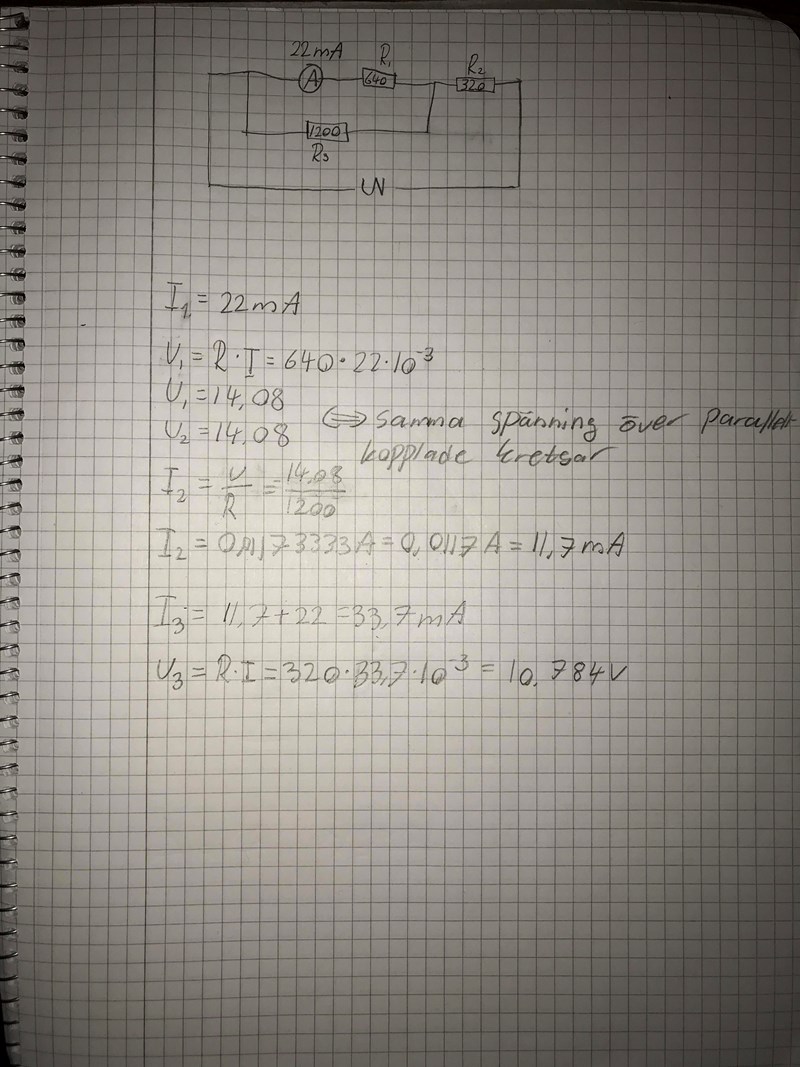 22mA
R₁
R₂
A
640
320
1200
R₃
UN
I₁ = 22mA
U₁ = R·I = 640·22·10⁻³
U₁ = 14,08
U₂ = 14,08 <=> Samma spänning över parallell-
kopplade kretsar
I₂ = U/R = 14,08/1200
I₂ = 0,01173333A = 0,0117A = 11,7mA
I₃ = 11,7+22 = 33,7mA
U₃ = R·I = 320·33,7·10⁻³ = 10,784V